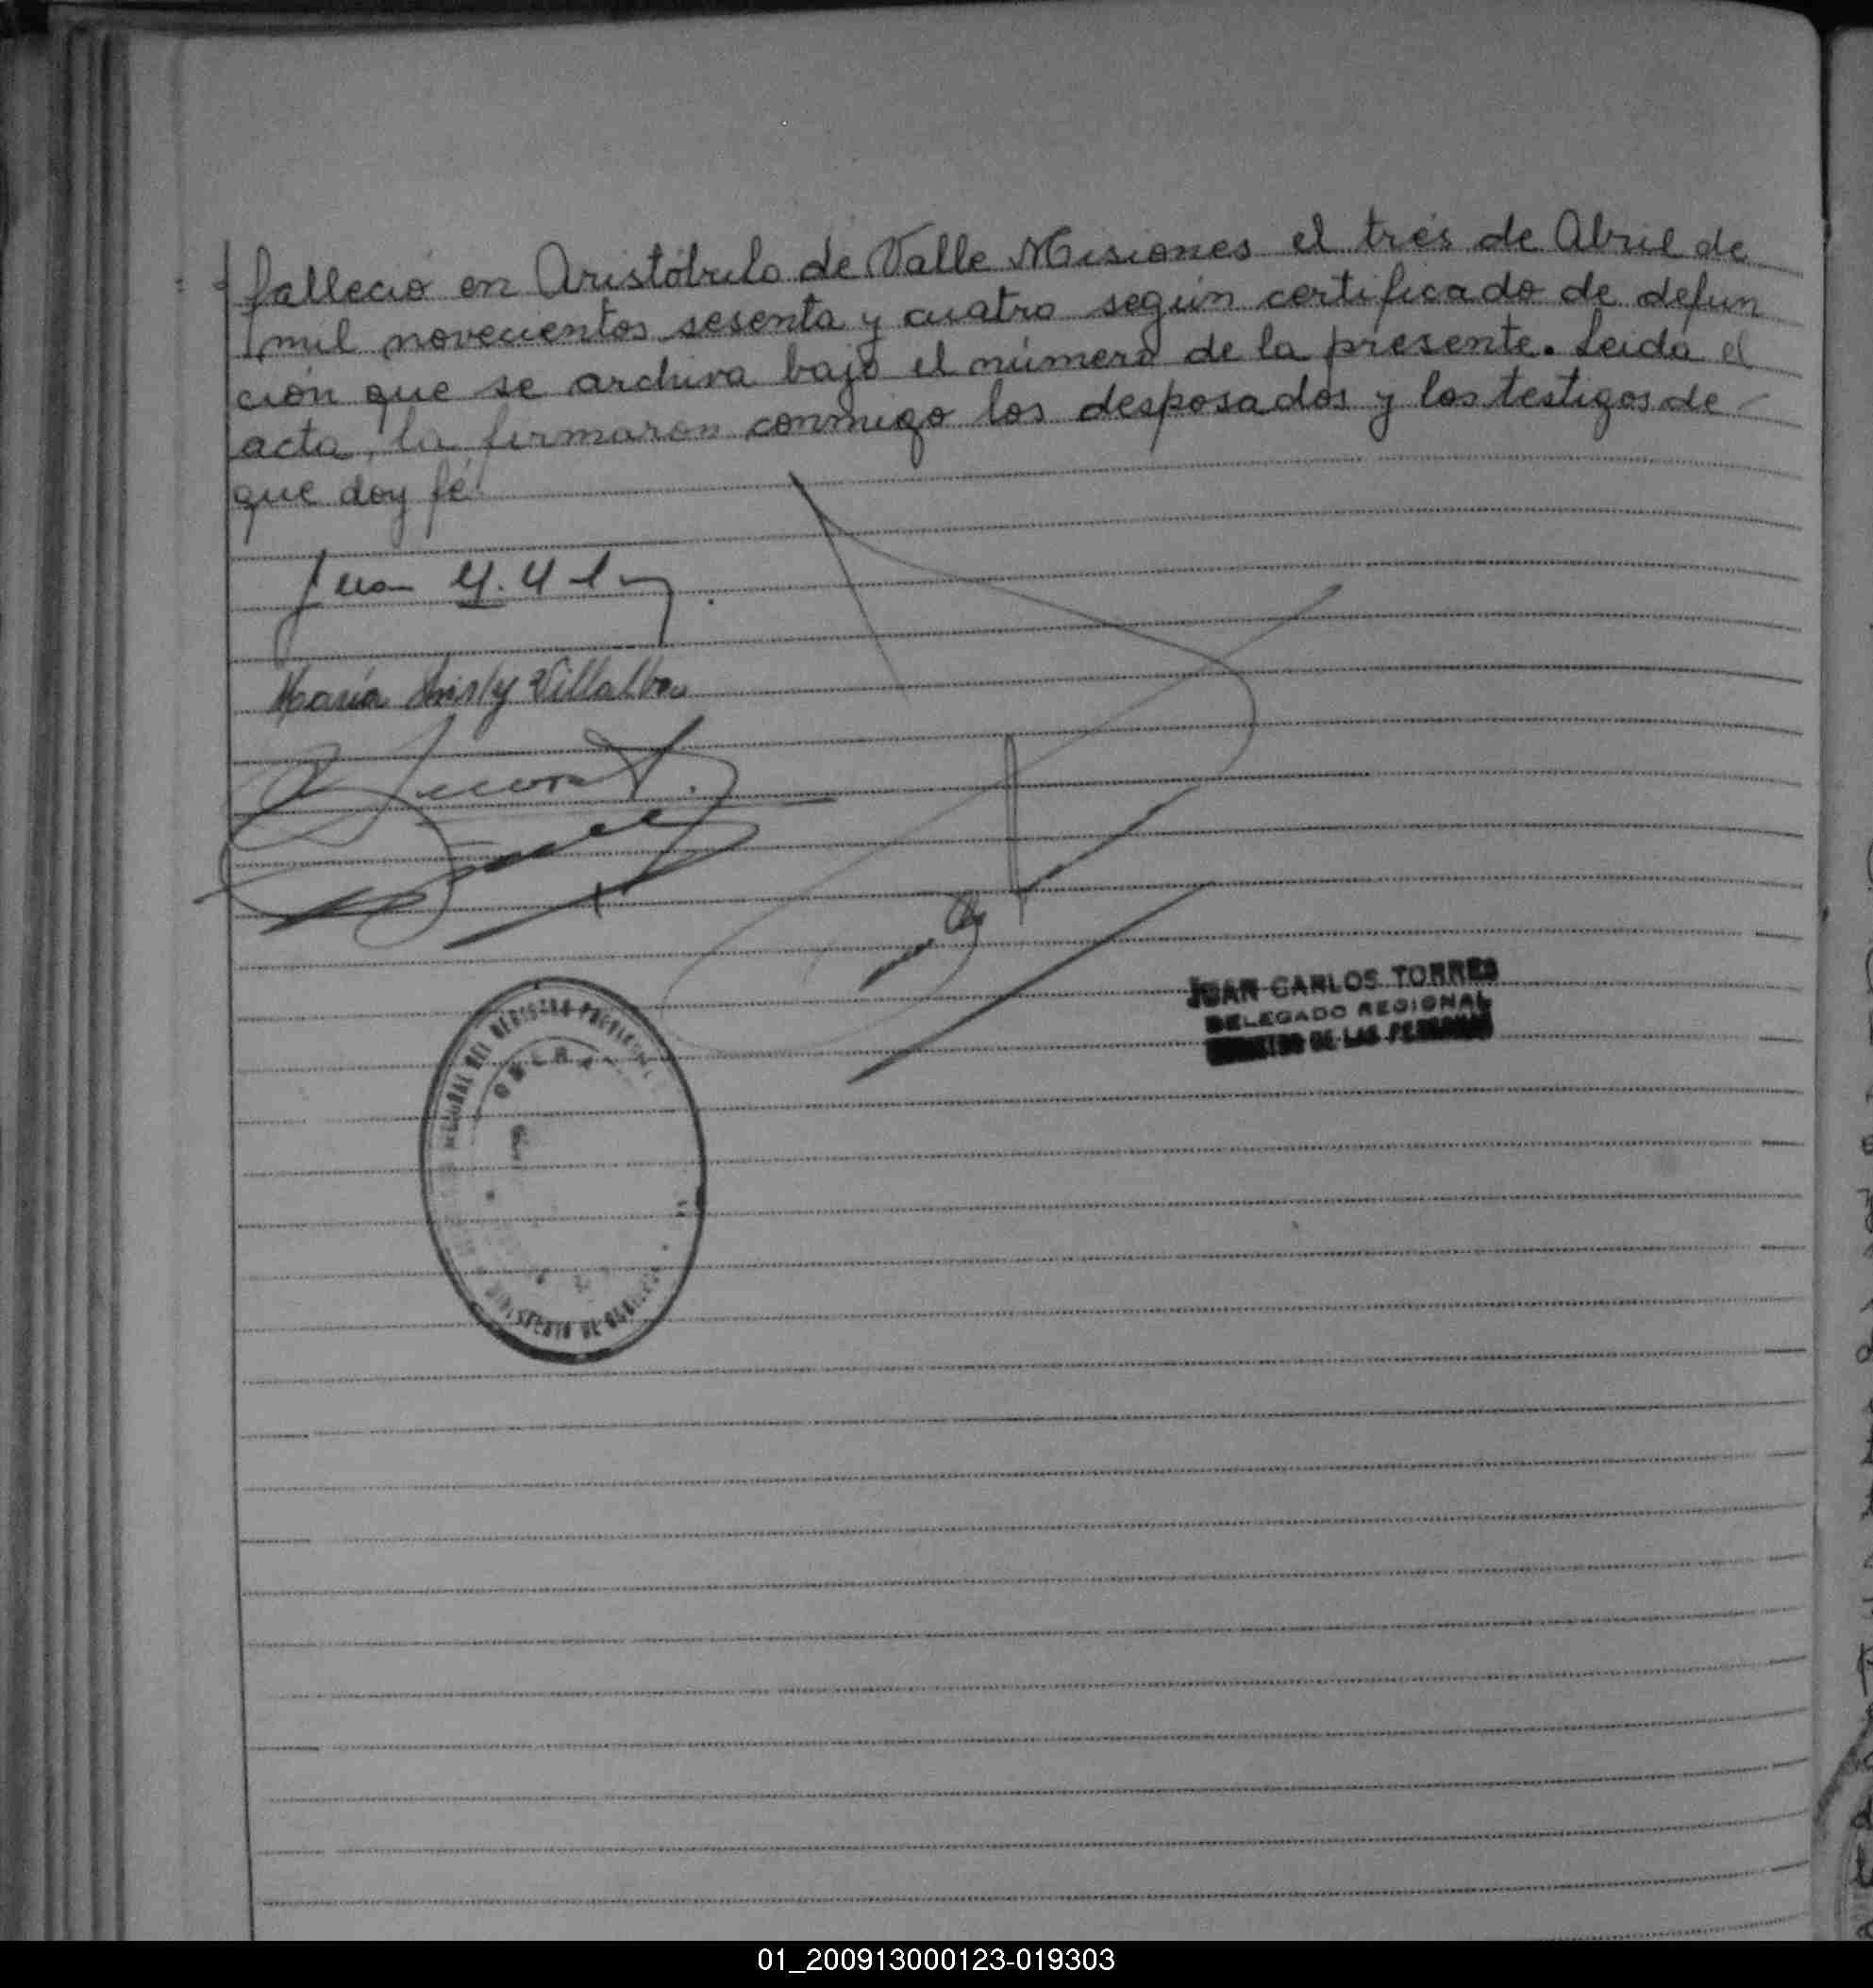 falleció en Aristóbulo de Valle Misiones el tres de Abril de
mil novecientos sesenta y cuatro según certificado de defun
ción que se archiva bajo el número de la presente. Leida el
acta, la firmaron conmigo los desposados y los testigos de
que doy fé.
Juan
María Shirly Villalba
JUAN CARLOS TORRES
DELEGADO REGIONAL
DE LAS PERSONAS
DEL REGISTRO PROVINCIAL
OBERA
01_200913000123-019303